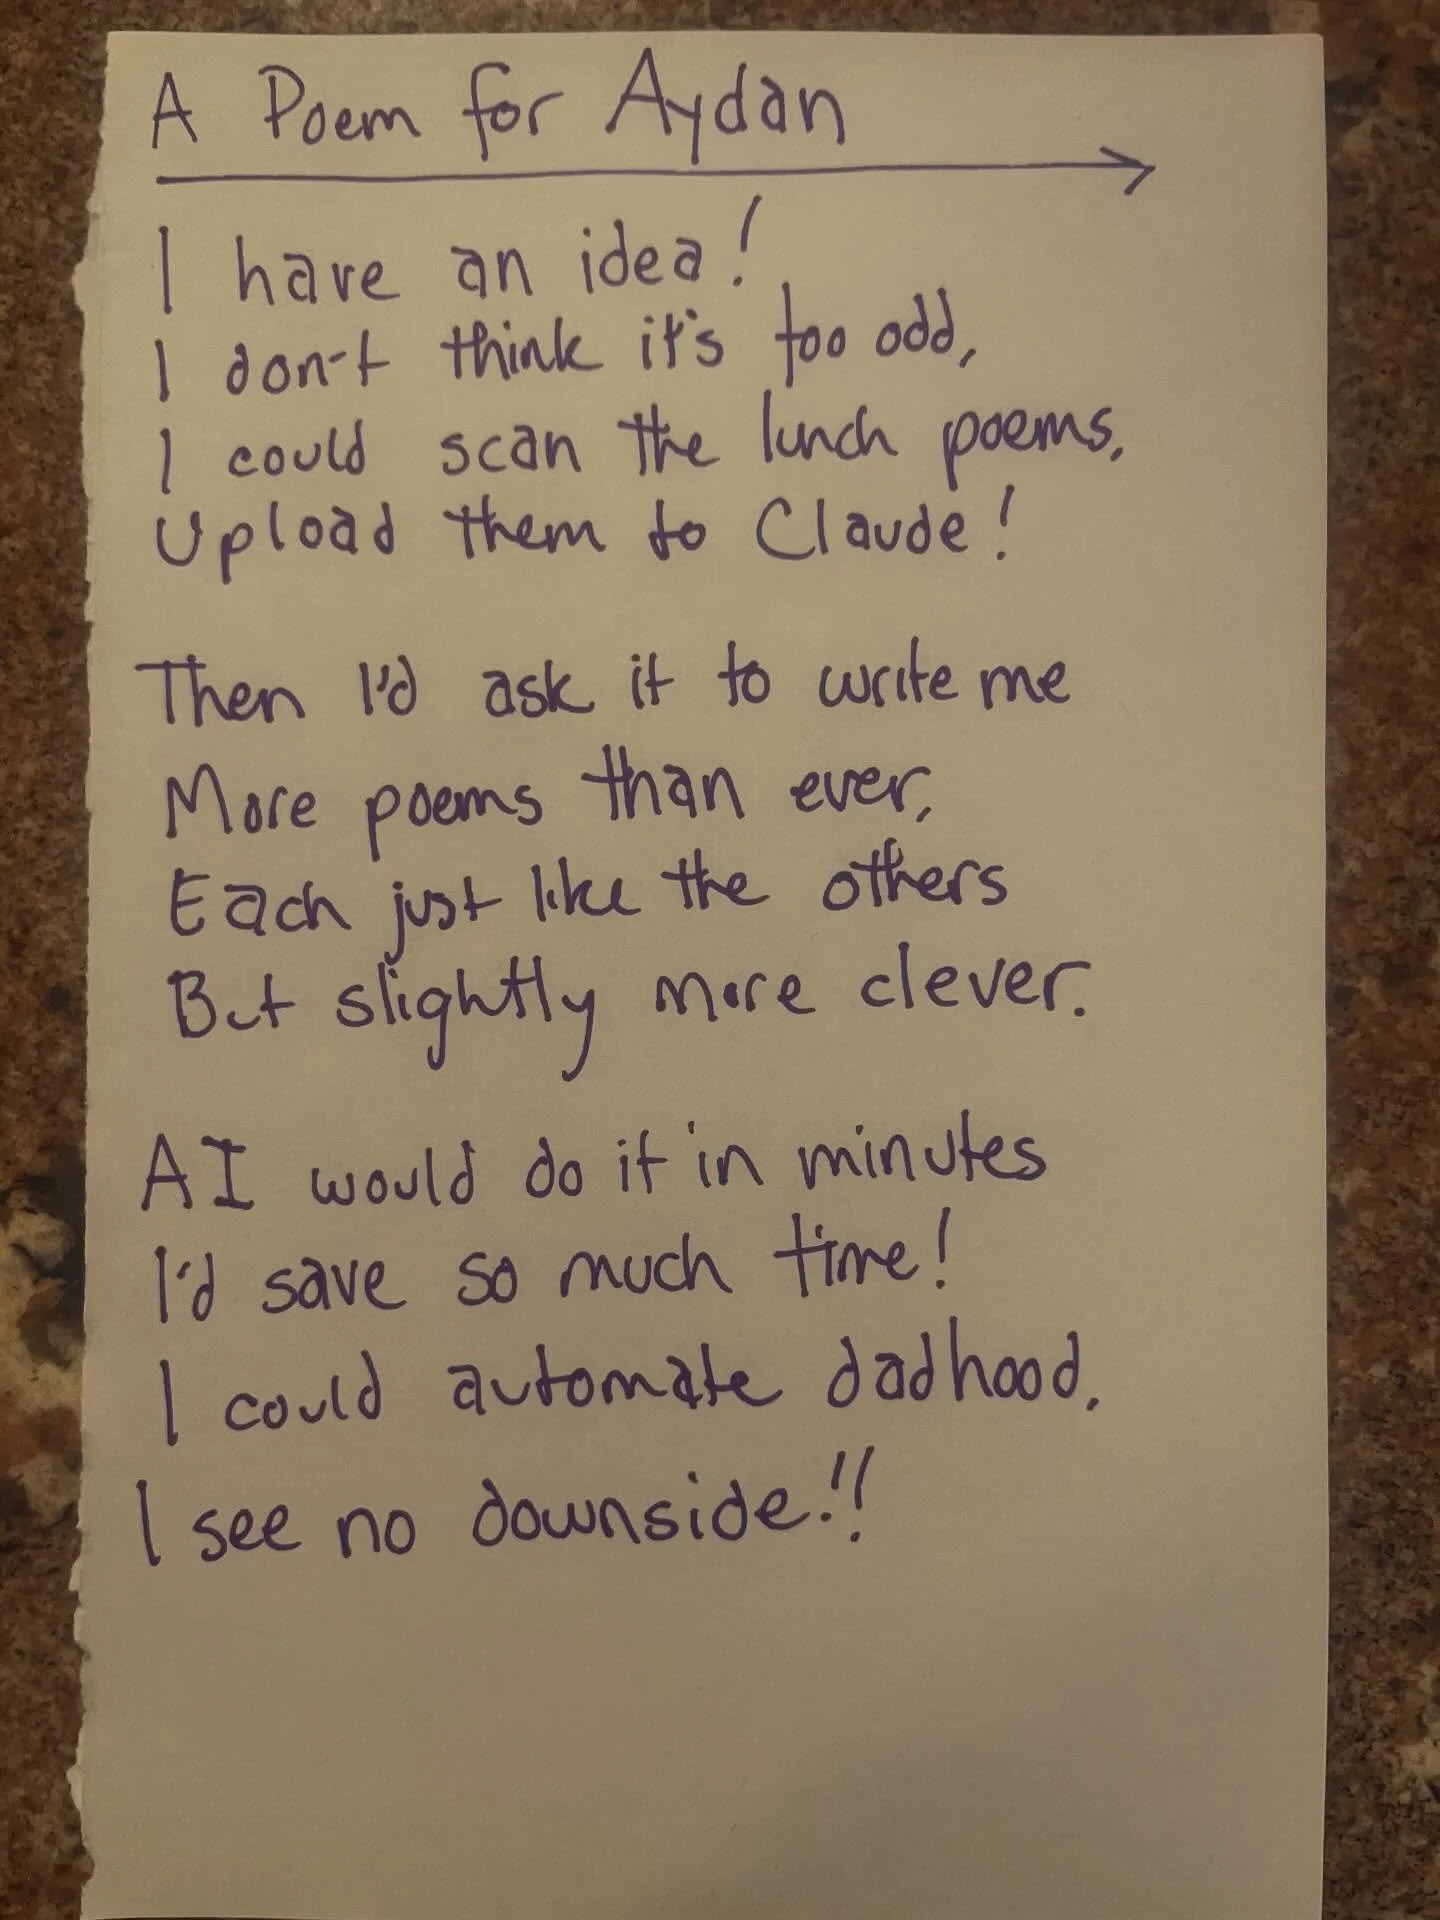 A Poem for Aydan
I have an idea!
I don't think it's too odd,
I could scan the lunch poems,
Upload them to Claude!
Then I'd ask it to write me
More poems than ever,
Each just like the others
But slightly more clever.
AI would do it in minutes
I'd save so much time!
I could automate dadhood,
I see no downside!!